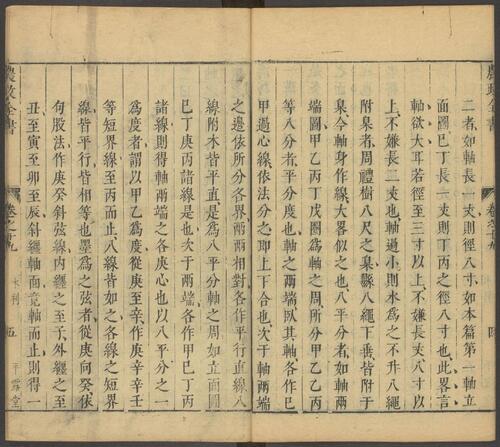 二者如軸長一丈則徑八寸如本篇第一軸立
面圖巳丁長一丈則丁丙之徑八寸也此畧言
軸欲大耳若徑至三寸以上不嫌長丈八寸以
上不嫌長二丈也軸過小則水爲之不升八繩
附臬者周禮樹八尺之臬縣八繩下垂皆附于
臬今軸身作線大畧似之也八平分者如軸兩
端圖甲乙丙丁戊圜爲軸之周所分甲乙乙丙
等八分者平分度也軸之兩端臥其軸各作巳
甲過心線依法分之即上下合也次于軸兩端
之邊依所分各界兩兩相對各作平行直線八
線附木皆平直是爲八平分軸之周如立面圖
巳丁庚丙諸線是也次于兩端各作甲巳丁丙
諸線則得軸兩端之各庚心也以八平分之一
爲度者謂以甲乙爲度從庚至辛作庚辛辛壬
等短界線至丙而止八線皆如之各線之短界
線皆平行皆相等也墨爲之弦者從庚向癸依
句股法作庚癸斜弦線内纏之至子外纏之至
丑至寅至卯至辰斜纏軸面竟軸而止則得一
農政全書
卷之十九
水利
五
平露堂
農政全書